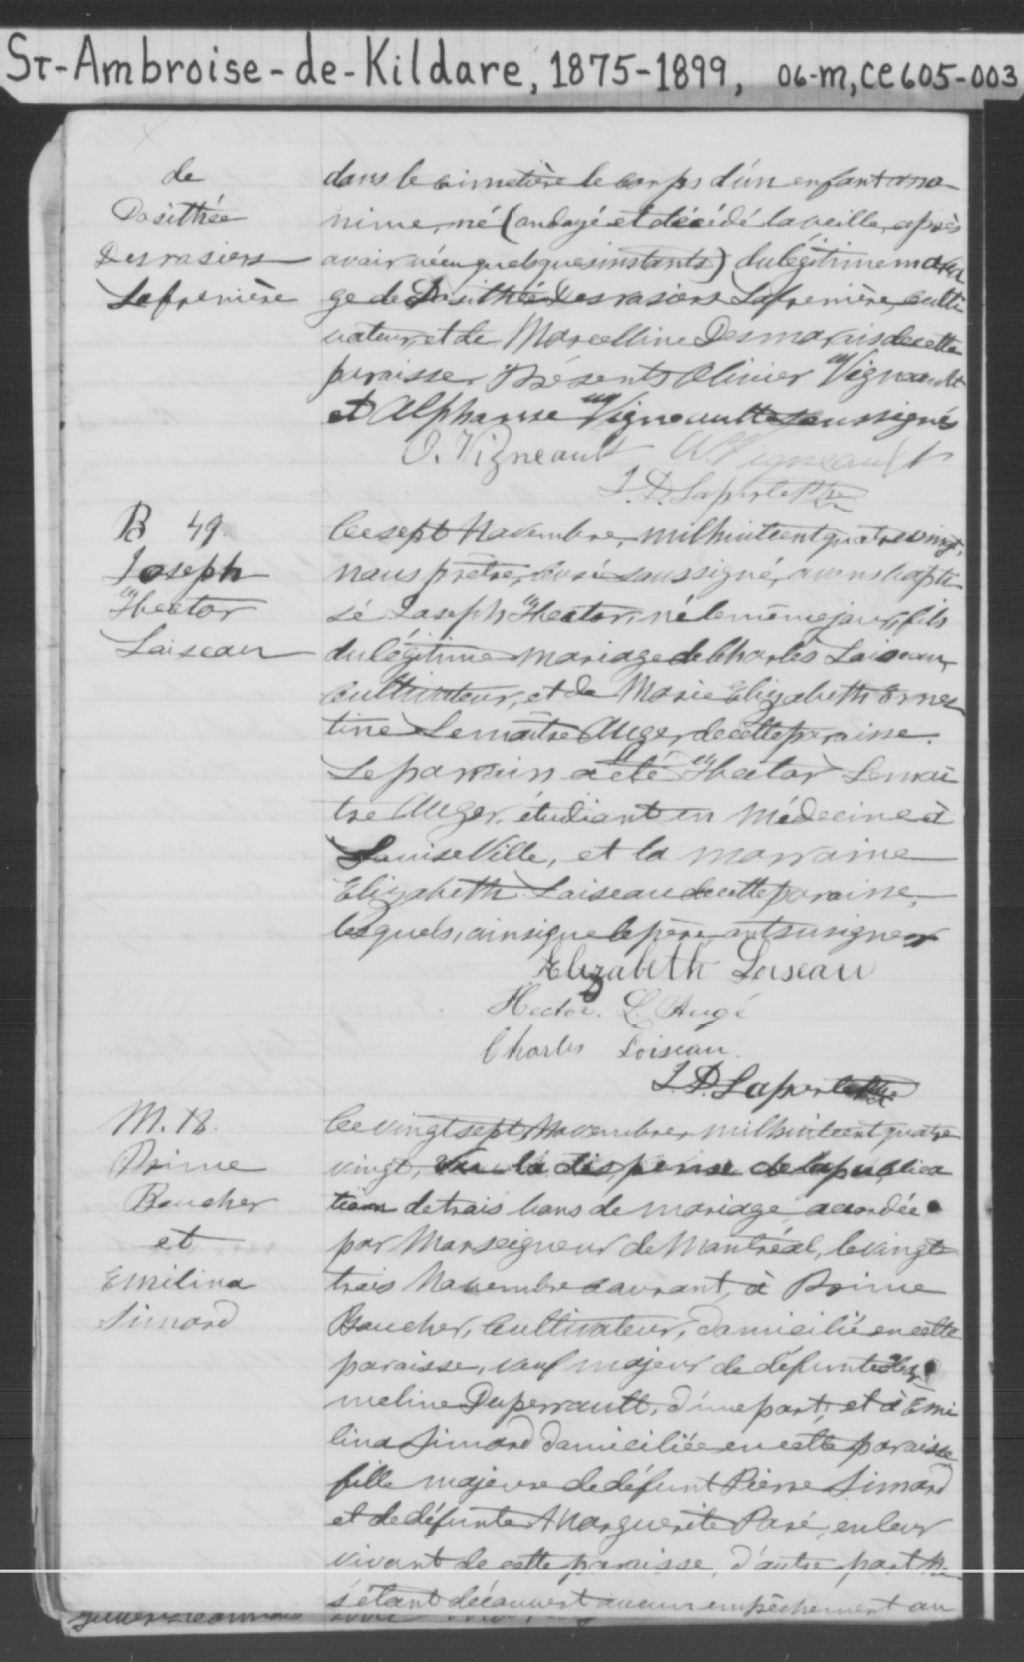 St-Ambroise-de-Kildare, 1875-1899, 06-M, CE605-003
de
Dosithée
Desrosiers
Lafrenière
dans le cimetière le corps d'un enfant ano-
nime, né (ondoyé et décédé la veille, après
avoir vécu quelques instants) du légitime maria
ge de Dosithée Desrosiers Lafrenière, culti
vateur, et de Marcelline Desmarais de cette
paroisse. Présents Olivier Vigneault
et Alphonse Vigneault soussignés
O. Vigneault A. Vigneault
J. D. Laporte Ptre
B 49.
Joseph
Hector
Loiseau
Ce sept Novembre, mil huit cent quatre vingt,
nous prêtre, curé soussigné, avons bapti
sé Joseph Hector, né le même jour, fils
du légitime mariage de Charles Loiseau,
cultivateur, et de Marie Elizabeth Ernes
tine Lemaître Auger, de cette paroisse.
Le parrain a été Hector Lemaî
tre Auger, étudiant en Médecine à
Louiseville, et la marraine
Elizabeth Loiseau de cette paroisse,
lesquels, ainsi que le père, ont su signer
Elizabeth Loiseau
Hector. L. Augé
Charles Loiseau.
J. D. Laporte Ptre
M. 18.
Prime
Boucher
et
Emilina
Simard
Ce vingt sept Novembre, mil huit cent quatre
vingt, Vu la dispense de la publica
tion de trois bans de mariage accordée
par Monseigneur de Montréal, le vingt
trois Novembre courant, à Prime
Boucher, Cultivateur, domicilié en cette
paroisse, veuf majeur de défunte
meline Duperrault, d'une part, et à Emi
lina Simard domiciliée en cette paroisse
fille majeure de défunt Pierre Simard
et de défunte Marguerite Paré, en leur
vivant de cette paroisse, d'autre part Ne
s'étant découvert aucun empêchement au